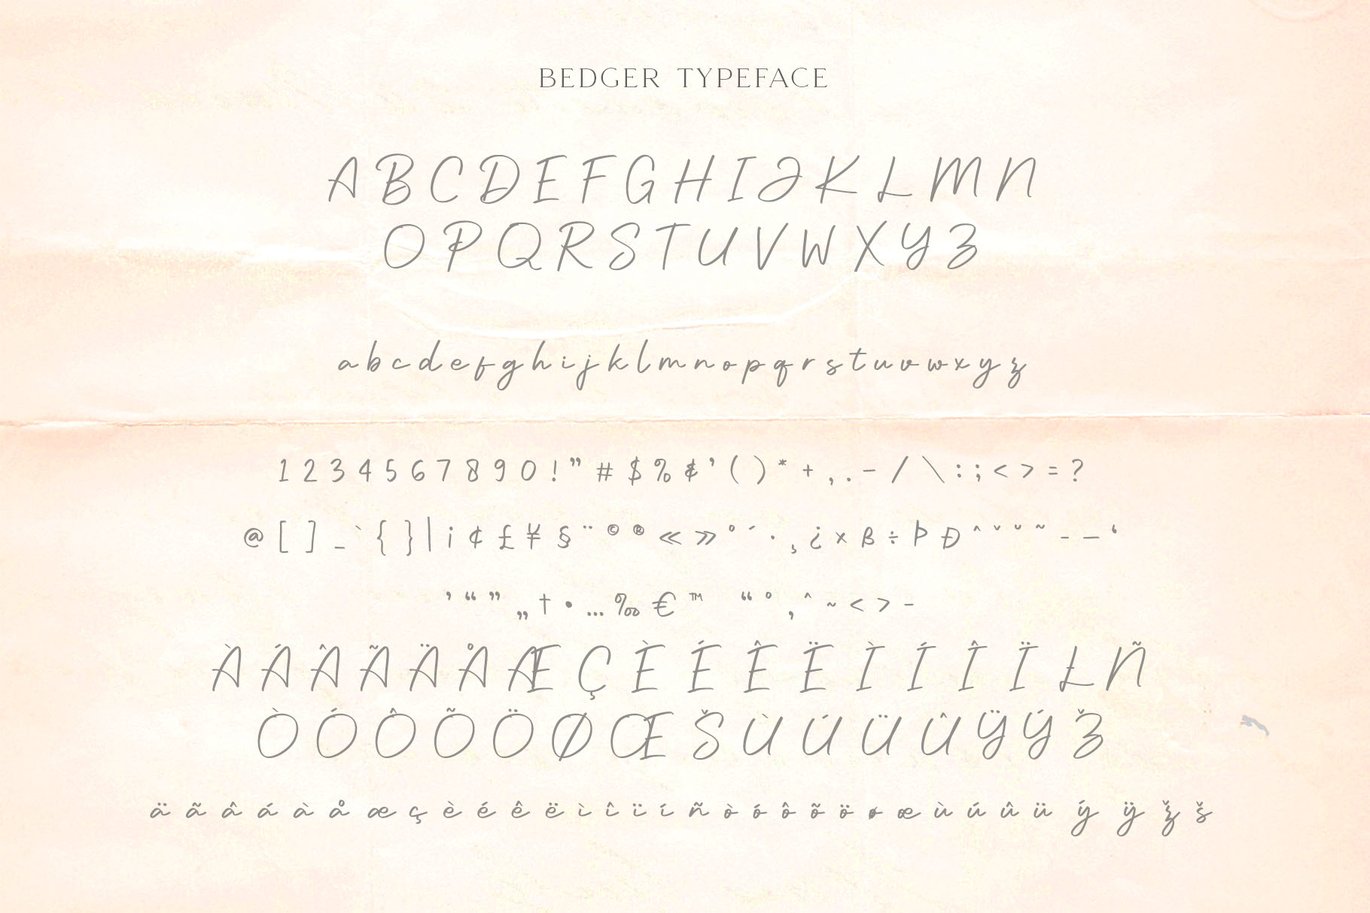 BEDGER TYPEFACE
A B C D E F G H I J K L M N
O P Q R S T U V W X Y Z
a b c d e f g h i j k l m n o p q r s t u v w x y z
1 2 3 4 5 6 7 8 9 0 ! " # $ % & ' ( ) * + , . - / \ : ; < > = ?
@ [ ] _ ` { } | ¡ ¢ £ ¥ § ¨ © ® « » ° ´ · ¸ ¿ × ß ÷ Þ Ð ˆ ˇ ˘ ˜ – — ‘
’ “ ” „ † • … ‰ € ™ “ ° , ^ ~ < > -
À Á Â Ã Ä Å Æ Ç È É Ê Ë Ì Í Î Ï Ł Ñ
Ò Ó Ô Õ Ö Ø Œ Š Ù Ú Ü Û Ÿ Ý Ž
ä ã â á à å æ ç è é ê ë ì î ï í ñ ò ó ô õ ö ø œ ù ú û ü ý ÿ ž š